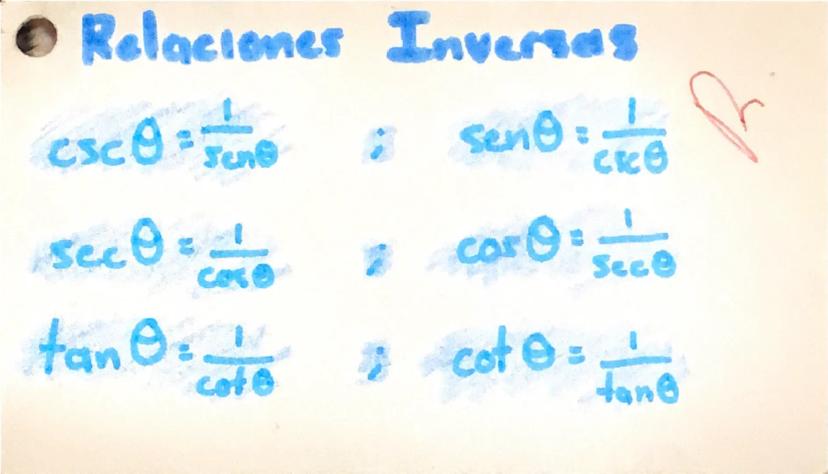 Relaciones Inversas
cscθ = 1/senθ ; senθ = 1/cscθ
secθ = 1/cosθ ; cosθ = 1/secθ
tanθ = 1/cotθ ; cotθ = 1/tanθ